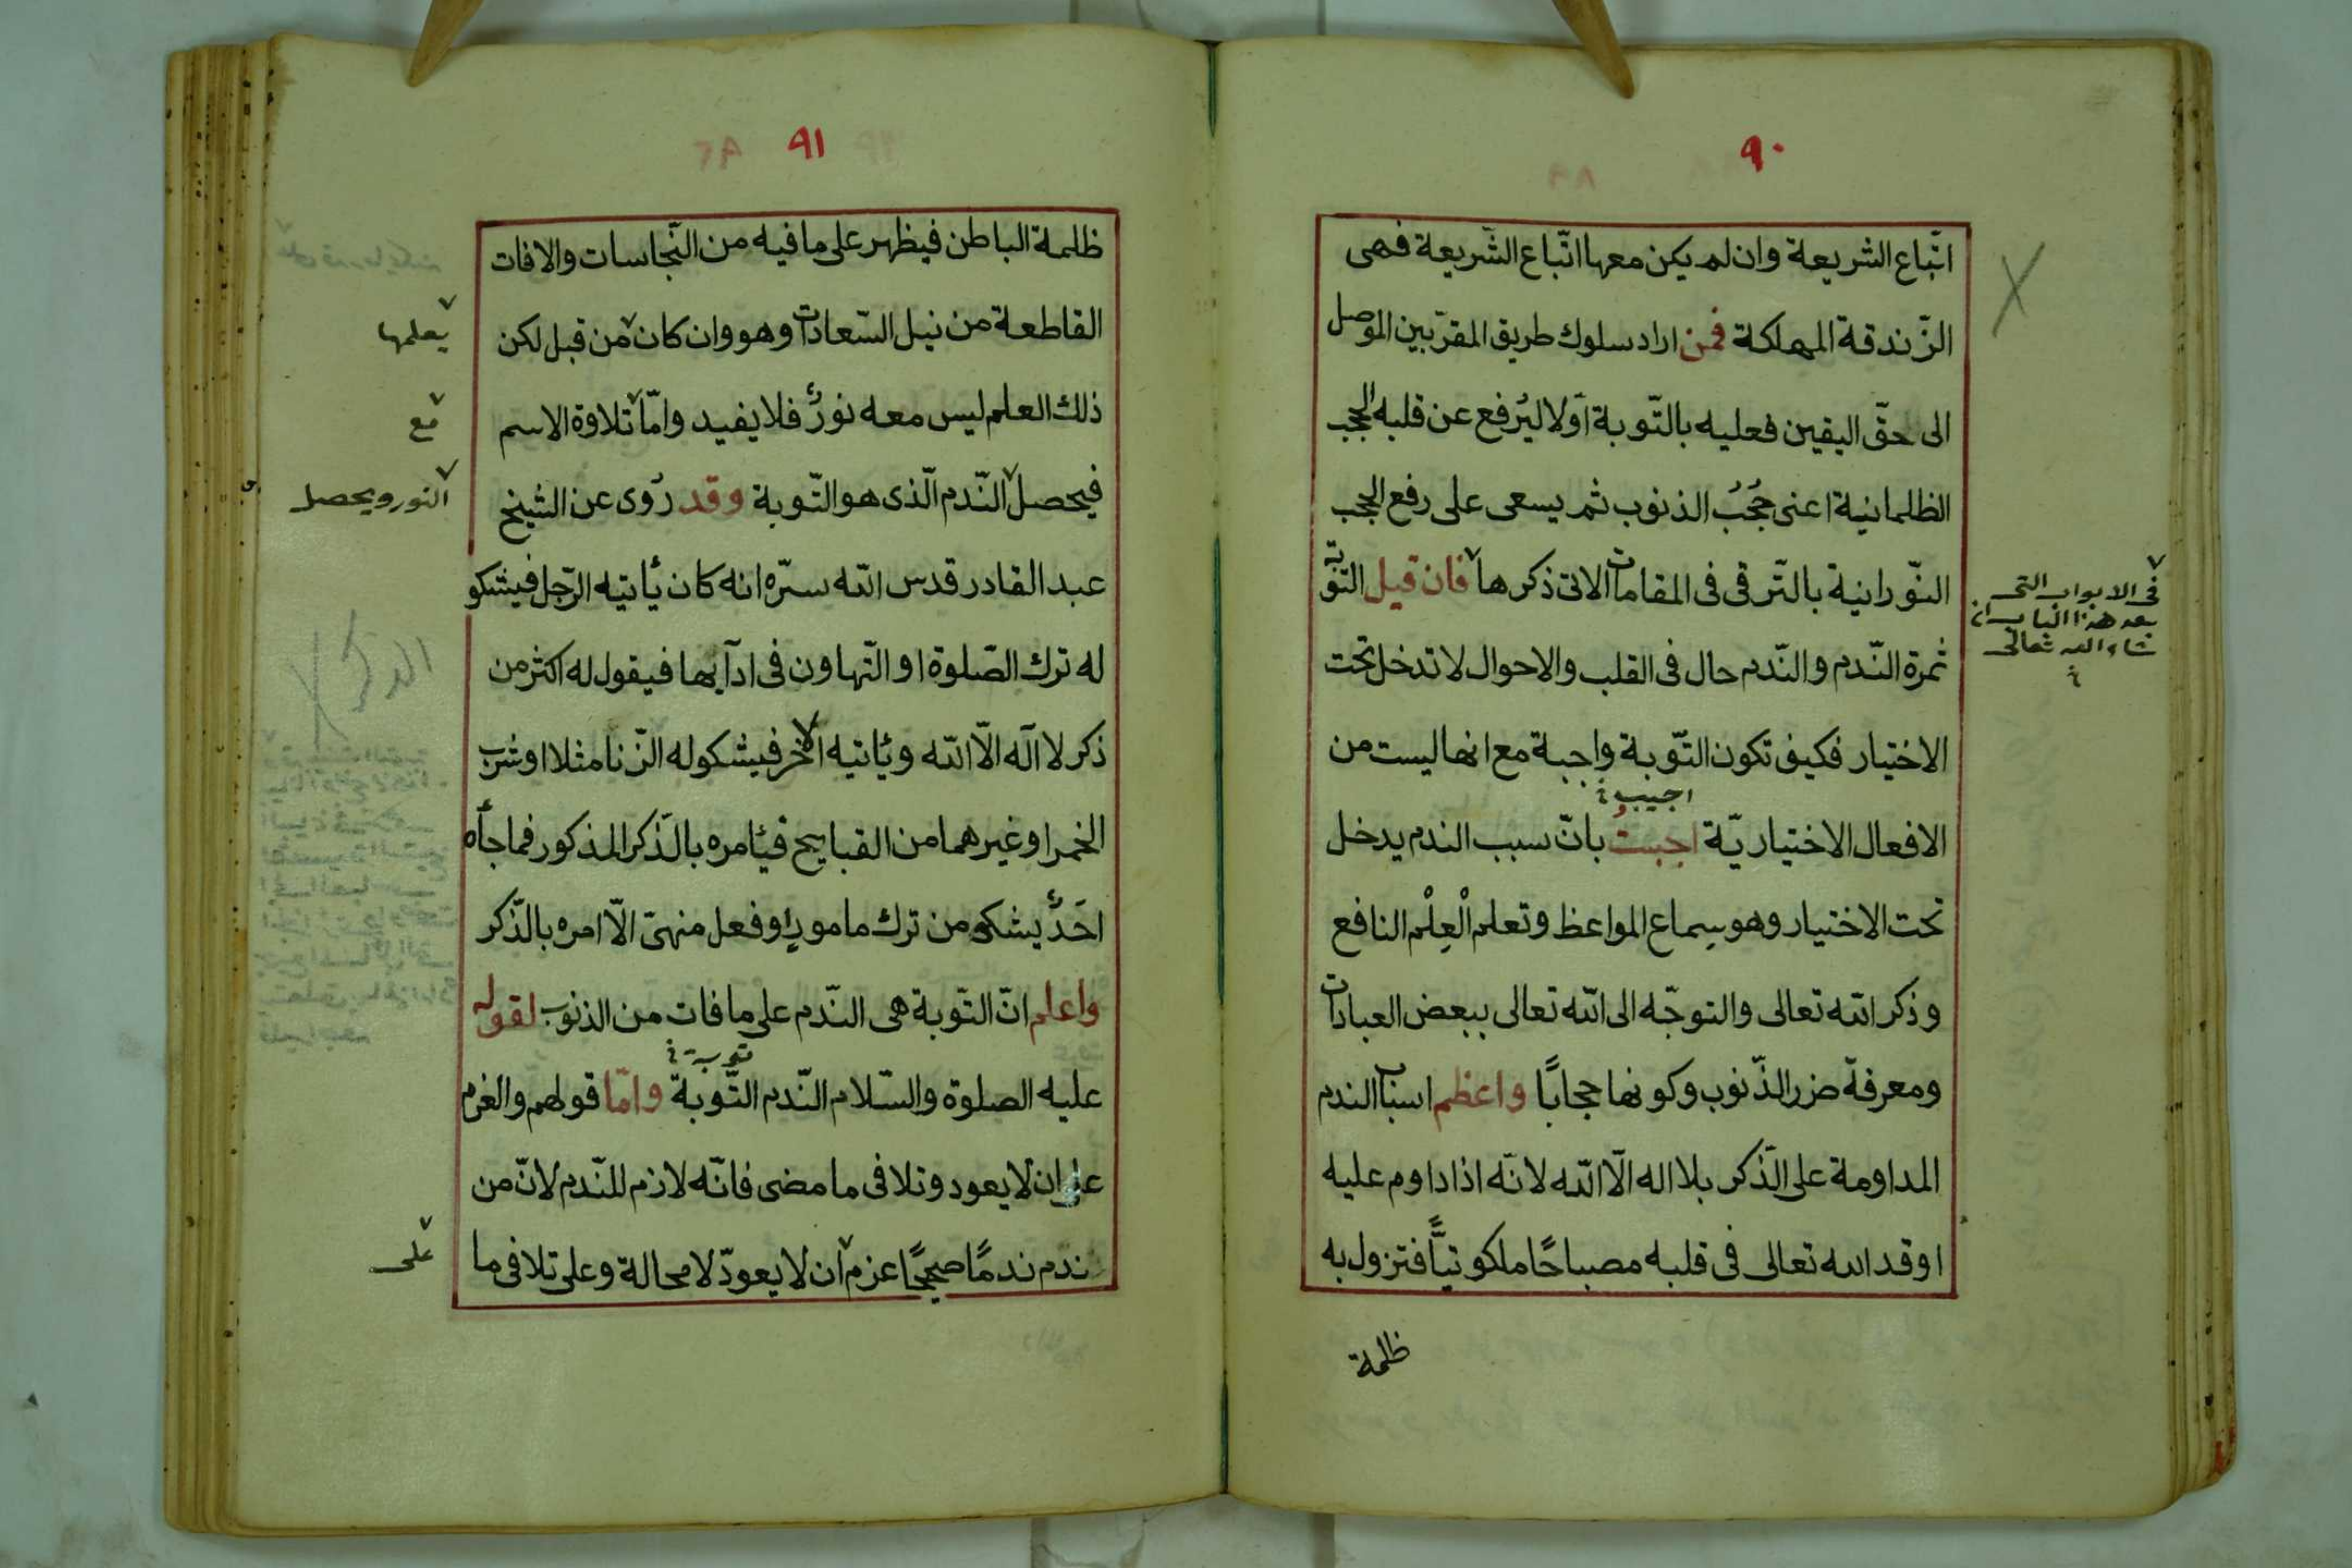 ٩٠
اتّباع الشريعة وان لم يكن معها اتّباع الشّريعة فهى
الزّندقة المهلكة فمن اراد سلوك طريق المقرّبين الموصل
الى حقّ اليقين فعليه بالتّوبة اوّلا ليُرفع عن قلبه الحجب
الظلمانية اعنى حُجُبُ الذنوب ثم يسعى على رفع الحجب
النّورانية بالتّرقى فى المقامات الاتى ذكرها فان قيل التّوبة
فى الابواب التى
بعد هذا الباب ان
شاء الله تعالى
ثمرة النّدم والنّدم حال فى القلب والاحوال لا تدخل تحت
الاختيار فكيف تكون التّوبة واجبة مع انها ليست من
اجيب
الافعال الاختياريّة اجبتُ بانّ سبب الندم يدخل
تحت الاختيار وهو سماع المواعظ وتعلم الْعِلْم النافع
وذكر الله تعالى والتوجّه الى الله تعالى ببعض العبادات
ومعرفة ضرر الذّنوب وكونها حجابًا واعظم اسباب الندم
المداومة على الذّكر بلا اله الّا الله لانّه اذا داوم عليه
اوقد الله تعالى فى قلبه مصباحًا ملكوتيًّا فتزول به
ظلمة
٩١
ظلمة الباطن فيظهر على ما فيه من النّجاسات والافات
القاطعة من نيل السّعادات وهو وان كان من قبل لكن
يعلمها
ذلك العلم ليس معه نورٌ فلا يفيد وامّا تلاوة الاسم
مع
فيحصل النّدم الّذى هو التّوبة وقد رُوى عن الشيخ
النور ويحصل
عبد القادر قدس الله سرّه انه كان يأتيه الرّجل فيشكو
له ترك الصّلوة او التّهاون فى ادآبها فيقول له اكثر من
ذكر لا اله الّا الله ويأتيه الاخر فيشكو له الزّنا مثلا او شرب
الخمر او غيرهما من القبايح فيأمره بالذّكر المذكور فما جأه
احَدٌ يشكى من ترك مامور او فعل منهىّ الّا امره بالذّكر
واعلم انّ التّوبة هى النّدم على ما فات من الذنوب لقوله
توبة
عليه الصلوة والسّلام النّدم التّوبة وامّا قولهم والعزم
على ان لا يعود وتلافى ما مضى فانّه لازم للنّدم لانّ من
ندم ندمًا صحيحًا عزم ان لا يعودّ لا محالة وعلى تلافى ما
على